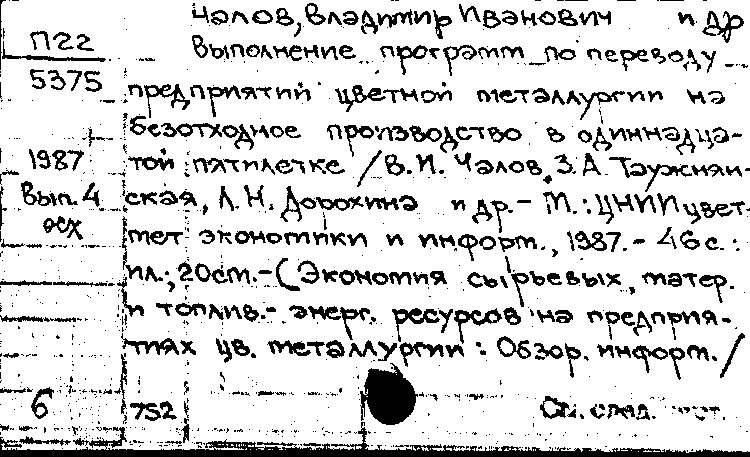 Чалов, Владимир Иванович и др
П22
выполнение программ по переводу
5375
предприятий цветной металлургии на
безотходное производство в одиннадца-
1987
той пятилетке / В. И. Чалов, З. А. Таужнян-
Вып. 4
ская, Л. Н. Дорохина и др. - М. : ЦНИИцвет-
осх
мет экономики и информ., 1987. - 46 с. :
ил.; 20 см. - (Экономия сырьевых, матер.
и топлив.- энерг. ресурсов на предприя-
тиях цв. металлургии : Обзор. информ. /
6
752
См. след.